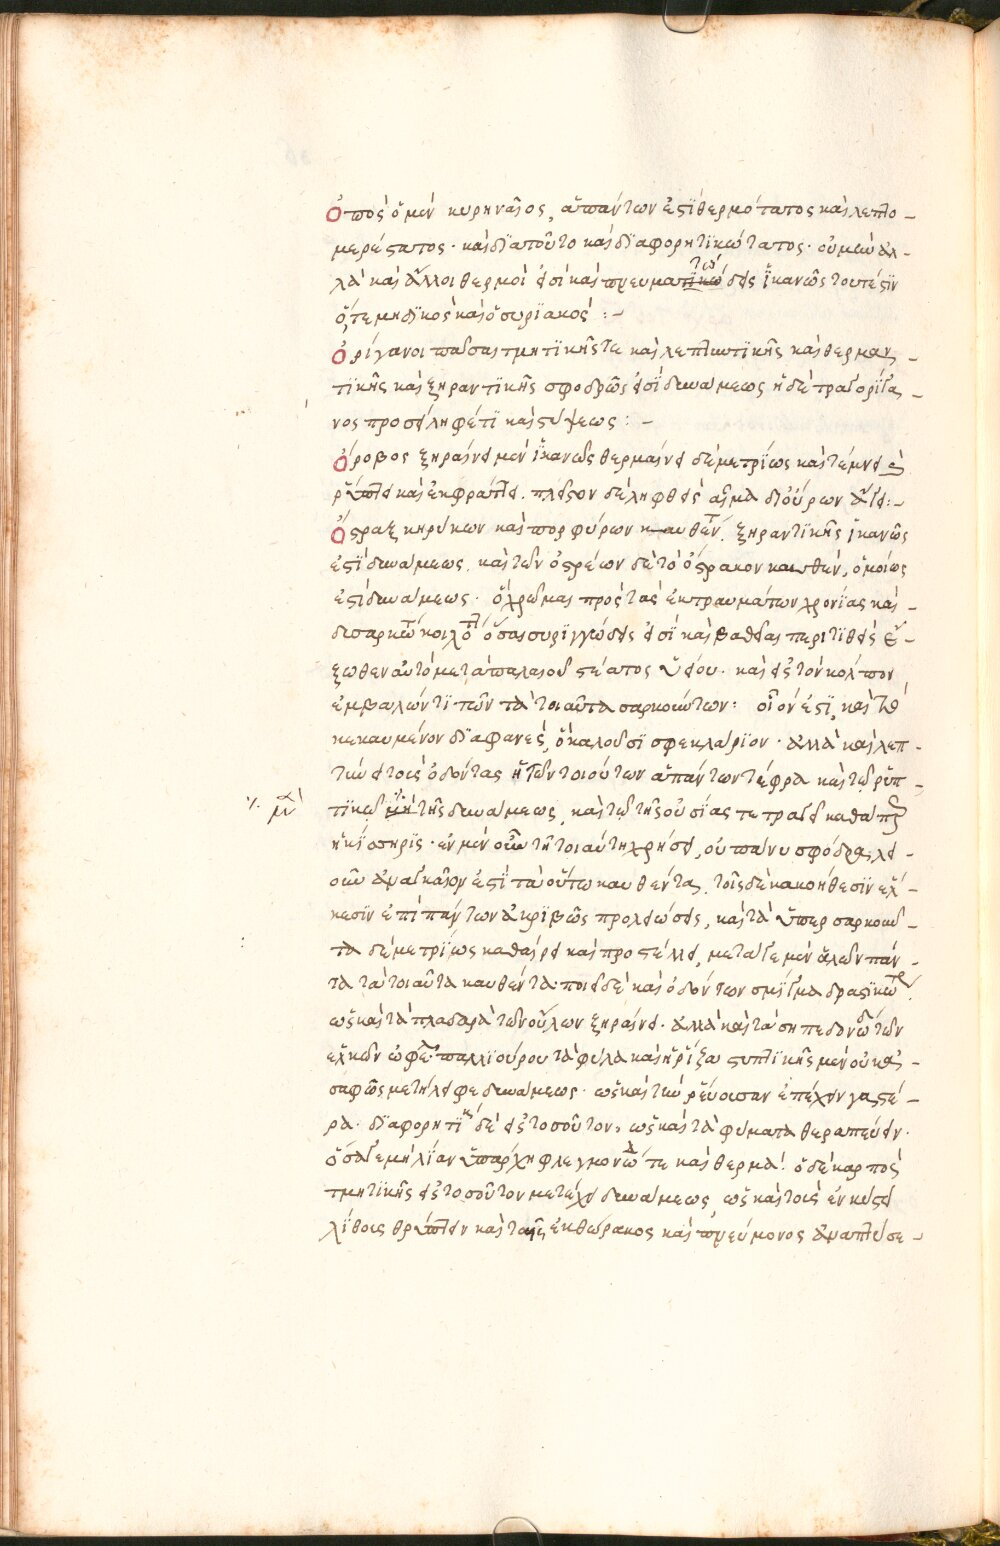 Ὀπὸς ὁ μὲν κυρηναῖος, ἁπάντων ἐστὶ θερμότατος καὶ λεπτο-
μερέστατος· καὶ διὰ τοῦτο καὶ διαφορητικώτατος· οὐ μὴν ἀλ-
λὰ καὶ ἄλλοι θερμοί εἰσι καὶ πνευματώδεις ἱκανῶς τουτέστιν
ὅ, τε μηδικὸς καὶ ὁ συριακός :-
Ὀρίγανοι πᾶσαι τμητικῆς τε καὶ λεπτυντικῆς καὶ θερμαν-
τικῆς καὶ ξηραντικῆς σφοδρῶς εἰσὶ δυνάμεως ἡ δὲ τραγορίγα-
νος προσείληφέ τι καὶ στύψεως :-
Ὄροβος ξηραίνει μὲν ἱκανῶς θερμαίνει δὲ μετρίως καὶ τέμνει καὶ
ῥύπτει καὶ ἐκφράττει. πλεῖον δὲ ληφθεὶς αἷμα δι' οὔρων ἄγει :-
Ὄστραξ κηρύκων καὶ πορφύρων καυθέντων, ξηραντικῆς ἱκανῶς
ἐστὶ δυνάμεως. καὶ τῶν ὀστρέων δὲ τὸ ὄστρακον καυθέν, ὁμοίως
ἐστὶ δυνάμεως. ᾧ χρώμαι πρὸς τὰς ἐκ τραυμάτων χρονίας καὶ
δυσαρκώτους κοιλότητας ὅσαι συριγγώδεις εἰσὶ καὶ βαθεῖαι περιτιθεὶς ἔ-
ξωθεν αὐτὸ μετὰ παλαιοῦ στέατος ὑείου. καὶ εἰς τὸν κόλπον
ἐμβαλών τι τῶν τὰ τοιαῦτα σαρκούντων: οἷον ἐστὶ, καὶ τὸ
κεκαυμένον διαφανές, ὃ καλοῦσι σφεκλάριον· ἀλλὰ καὶ λεπ-
τύνει τοὺς ὀδόντας ἡ τῶν τοιούτων ἁπάντων τέφρα καὶ τῷ ῥυπ-
μὰλ τικῷ τῆς δυνάμεως, καὶ τῷ τῆς οὐσίας τετραγώ καθάπερ
ἡ κίσηρις· ἐν μὲν οὖν τῇ τοιαύτῃ χρήσει, οὐ πάνυ σφόδρα λει-
οῦν ἀναγκαῖον ἐστὶ τὰ οὕτω καυθέντα. τοῖς δὲ κακοήθεσιν ἕλ-
κεσιν ἐπὶ πάντων ἀκριβῶς προλειώσεις, καὶ τὰ ὑπερσαρκοῦν-
τα δὲ μετρίως καθαίρει καὶ προστέλλει, μετά γε μὴν ἁλῶν πάν-
τα τὰ τοιαῦτα καυθέντα ποιεῖ δὲ καὶ ὀδόντων σμῖγμα δραστικώτερον
ὡς καὶ τὰ πλαδαρὰ τῶν οὔλων ξηραίνει· ἀλλὰ καὶ τὰ σηπεδονώδη τῶν
ἑλκῶν ὠφελεῖ παλλιούρου τὰ φύλλα καὶ ἡ ῥίζα στυπτικῆς μὲν οὐκ ἀ-
σαφῶς μετείληφε δυνάμεως· ὡς καὶ τὴν ῥέουσαν ἐπέχειν γαστέ-
ρα· διαφορητικῆς δὲ εἰς τοσοῦτον, ὡς καὶ τὰ φύματα θεραπεύειν·
ὅσα γε μὴ λίαν ὑπάρχῃ φλεγμονώδη τε καὶ θερμά! ὁ δὲ καρπὸς
τμητικῆς εἰς τοσοῦτον μετέχει δυνάμεως, ὡς καὶ τοὺς ἐν κύστει
λίθους θρύπτειν καὶ ταῖς ἐκ θώρακος καὶ πνεύμονος ἀναπτύσε-